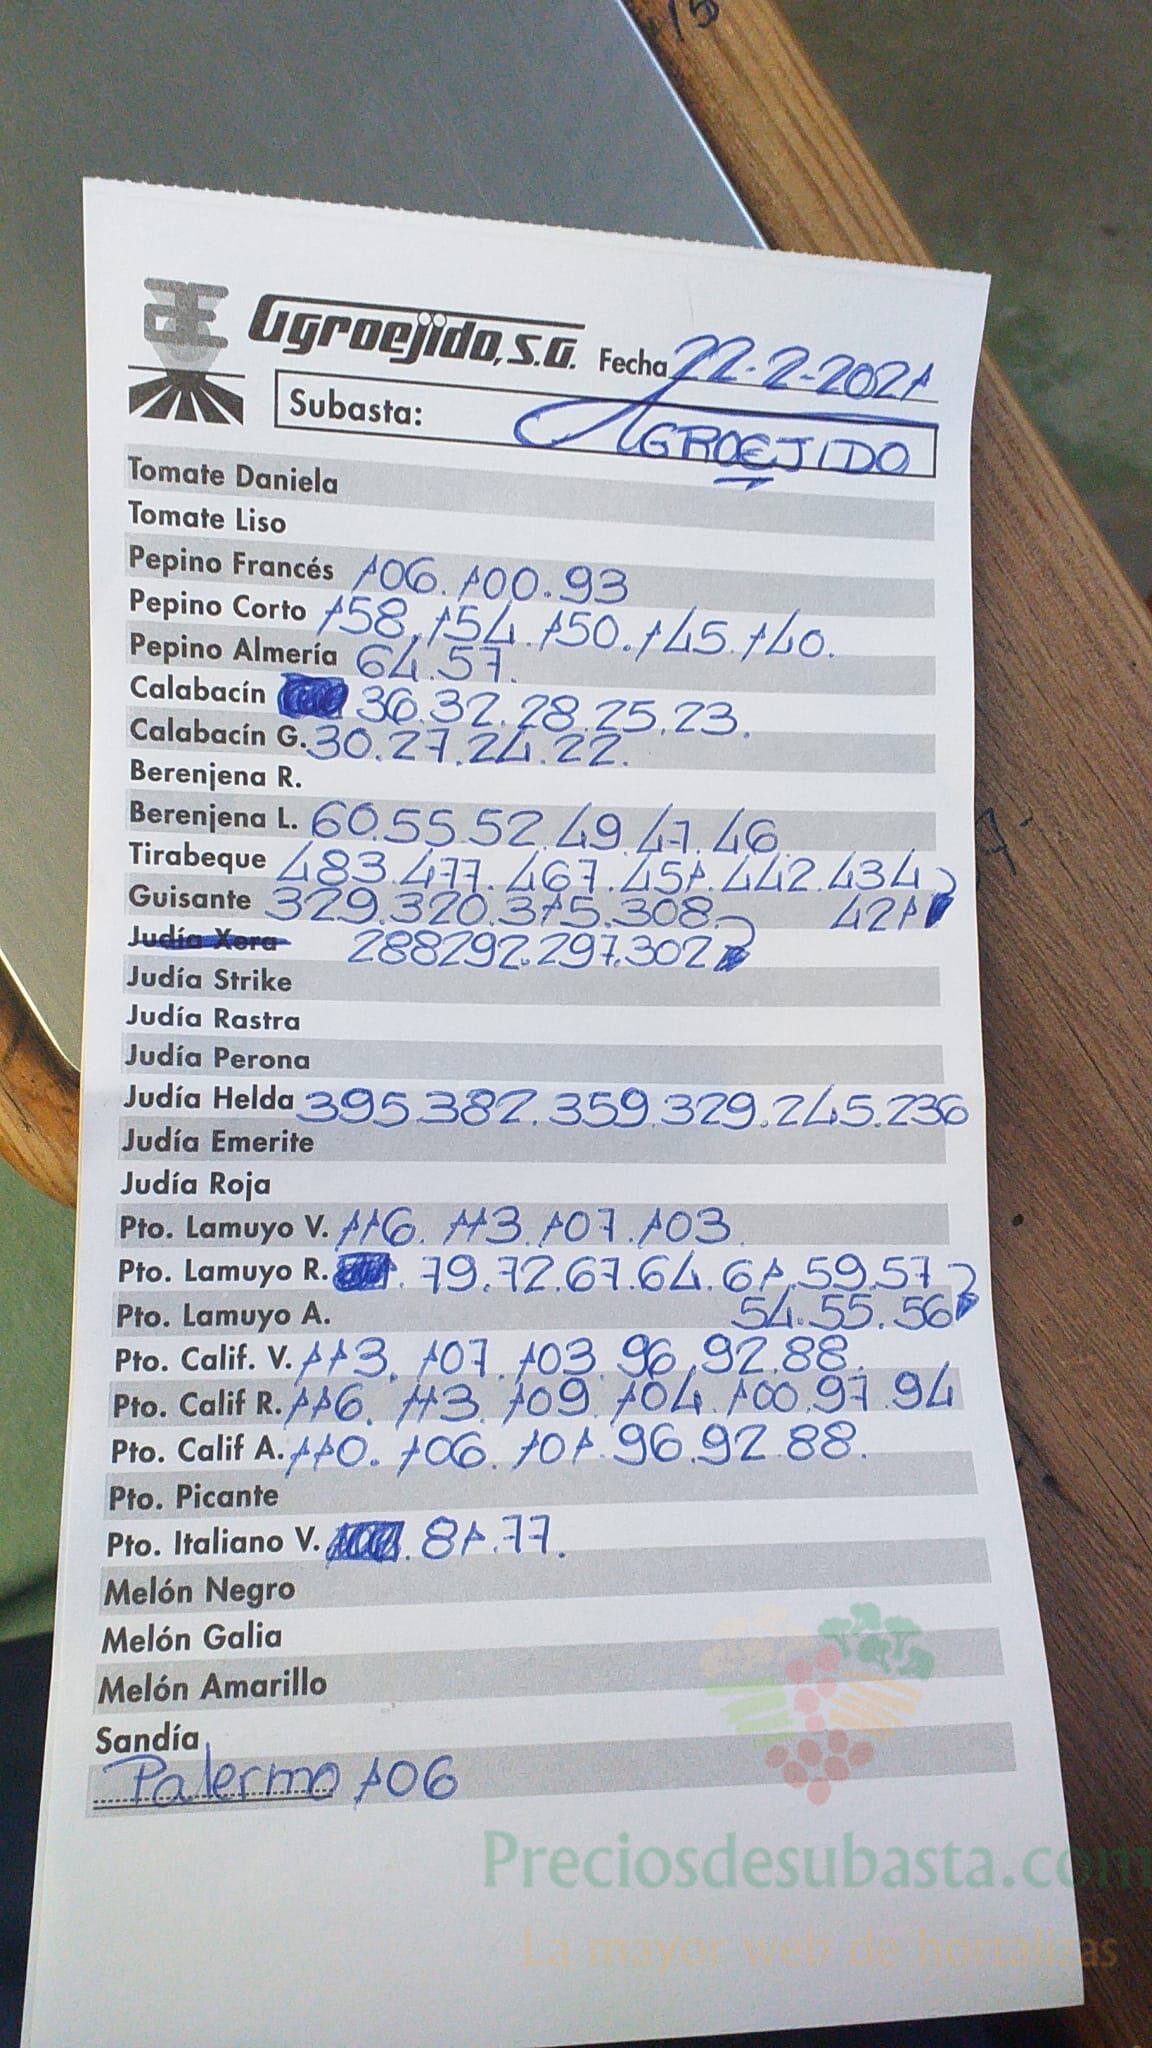 15
Agroejido, S.A. Fecha 22-2-2021
Subasta: AGROEJIDO
Tomate Daniela
Tomate Liso
Pepino Francés 106.100.93
Pepino Corto 158.154.150.145.140.
Pepino Almería 64.57.
Calabacín 36.32.28.25.23.
Calabacín G. 30.27.24.22.
Berenjena R.
Berenjena L. 60.55.52.49.47.46
Tirabeque 483.477.467.451.442.434
Guisante 329.320.315.308. 421
Judía Xera 288292.297.302
Judía Strike
Judía Rastra
Judía Perona
Judía Helda 395.382.359.329.245.236
Judía Emerite
Judía Roja
Pto. Lamuyo V. 116.113.107.103.
Pto. Lamuyo R. 79.72.67.64.61.59.57
Pto. Lamuyo A. 54.55.56
Pto. Calif. V. 113.107.103.96.92.88.
Pto. Calif R. 116.113.109.104.100.97.94
Pto. Calif A. 110.106.101.96.92.88.
Pto. Picante
Pto. Italiano V. 81.77.
Melón Negro
Melón Galia
Melón Amarillo
Sandía
Palermo 106
Preciosdesubasta.com
La mayor web de hortalizas